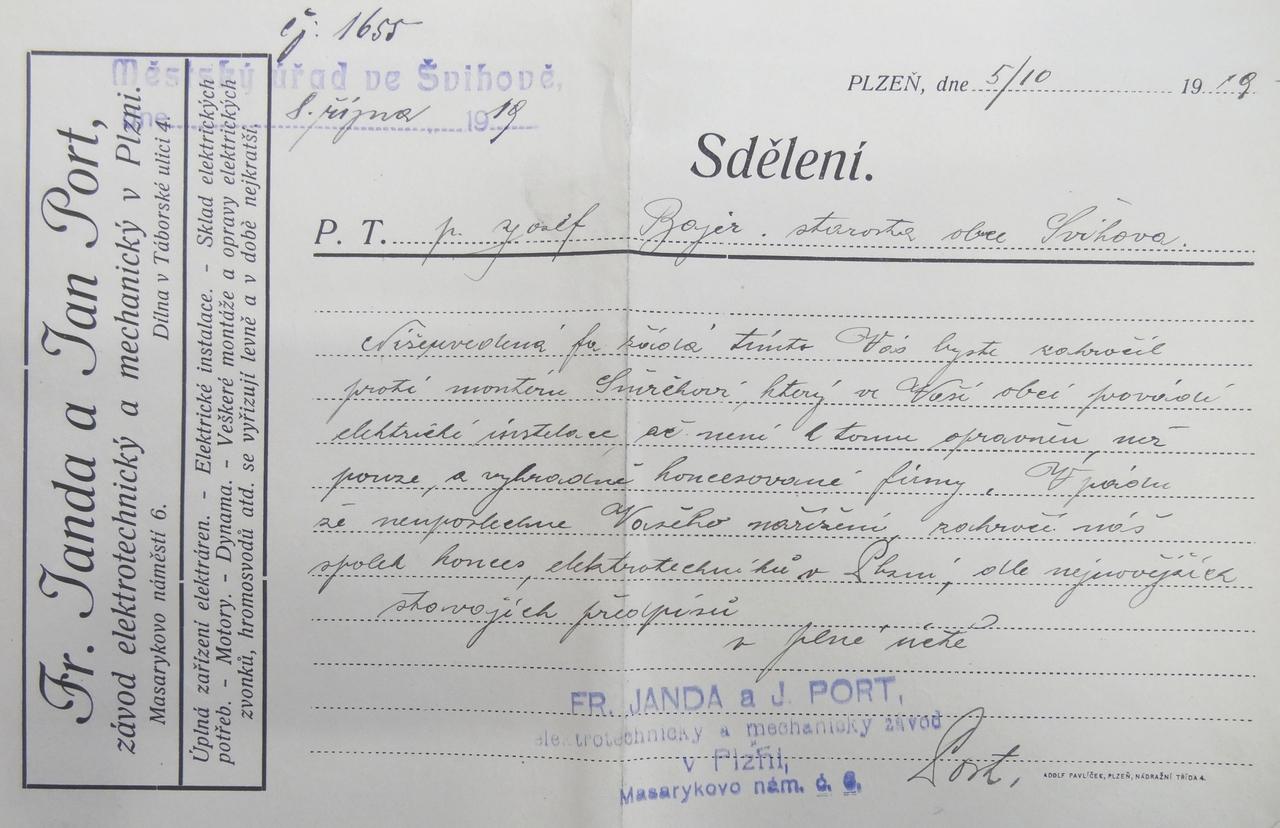 čj. 1655
Městský úřad ve Švihově,
dne 8. října 1919
PLZEŇ, dne 5/10 1919.
Sdělení.
P. T. p. Josef Bajer. starosta obce Švihova.
Fr. Janda a Jan Port,
závod elektrotechnický a mechanický v Plzni.
Masarykovo náměstí 6. Dílna v Táborské ulici 4.
Úplná zařízení elektráren. - Elektrické instalace. - Sklad elektrických
potřeb. - Motory. - Dynama. - Veškeré montáže a opravy elektrických
zvonků, hromosvodů atd. se vyřizují levně a v době nejkratší.
Nížeuvedená fa žádá tímto Vás byste zakročil
proti montéru Smrčkovi, který ve Vaší obci povádí
elektrické instalace, ač není k tomu oprávněn, než
pouze, a vyhradně koncesované firmy. V pádu
že neuposlechne Vašeho nařízení, zakročí náš
spolek konces, elektrotechniků v Plzni, dle nejnovějších
stavajích předpisů
v plné úctě
FR. JANDA a J. PORT,
elektrotechnický a mechanický závod
v Plzni,
Masarykovo nám. č. 6.
Port,
ADOLF PAVLÍČEK, PLZEŇ, NÁDRAŽNÍ TŘÍDA 4.